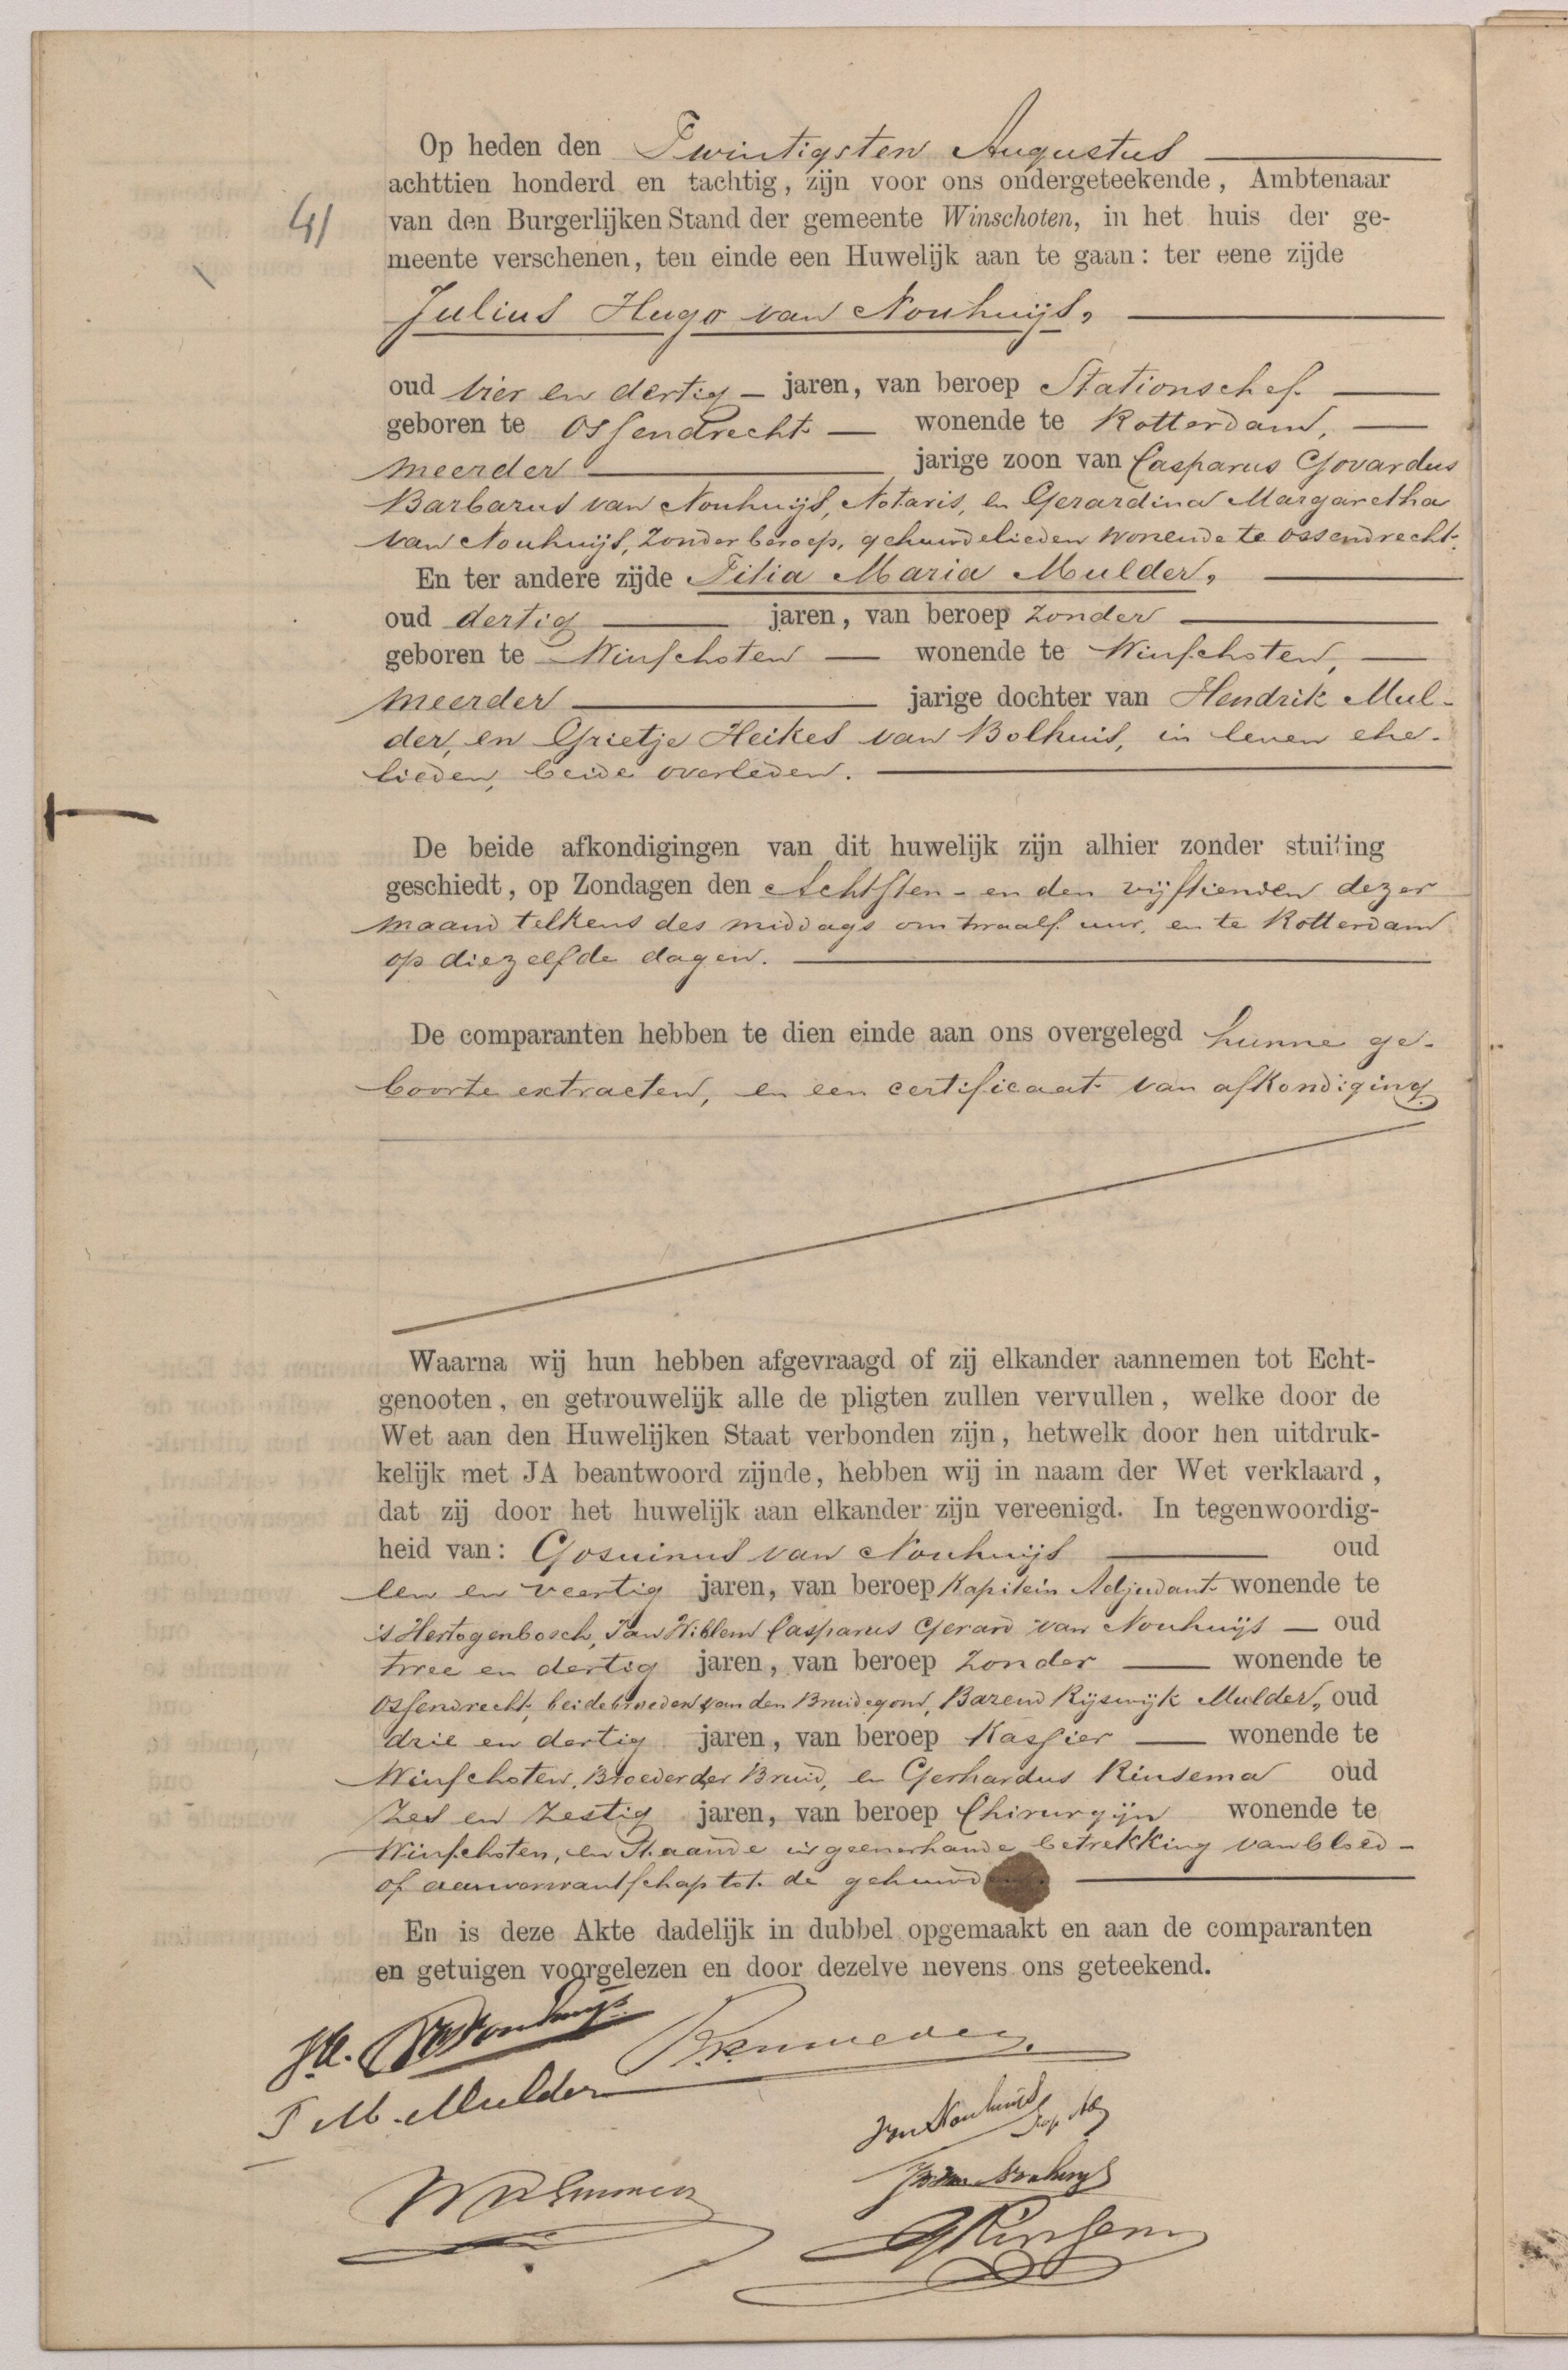 Op heden den Twintigsten Augustus
achttien honderd en tachtig, zijn voor ons ondergeteekende, Ambtenaar
41
van den Burgerlijken Stand der gemeente Winschoten, in het huis der ge-
meente verschenen, ten einde een Huwelijk aan te gaan: ter eene zijde
Julius Hugo van Nouhuijs,
oud vier en dertig jaren, van beroep Stationschef
geboren te Ossendrecht wonende te Rotterdam,
meerder jarige zoon van Casparus Govardus
Barbarus van Nouhuijs, Notaris, en Gerardina Margaretha
van Nouhuijs, Zonder beroep, gehuwdelieden wonende te Ossendrecht.
En ter andere zijde Titia Maria Mulder,
oud dertig jaren, van beroep zonder
geboren te Winschoten wonende te Winschoten,
meerder jarige dochter van Hendrik Mul-
der, en Grietje Heikes van Bolhuis, in leven ehe-
lieden, beide overleden.
De beide afkondigingen van dit huwelijk zijn alhier zonder stuiting
geschiedt, op Zondagen den Achtsten - en den vijftienden dezer
maand telkens des middags om twaalf uur, en te Rotterdam
op diezelfde dagen.
De comparanten hebben te dien einde aan ons overgelegd hunne ge-
boorte extracten, en een certificaat van afkondiging
Waarna wij hun hebben afgevraagd of zij elkander aannemen tot Echt-
genooten, en getrouwelijk alle de pligten zullen vervullen, welke door de
Wet aan den Huwelijken Staat verbonden zijn, hetwelk door hen uitdruk-
kelijk met JA beantwoord zijnde, hebben wij in naam der Wet verklaard,
dat zij door het huwelijk aan elkander zijn vereenigd. In tegenwoordig-
heid van: Gosuinus van Nouhuijs oud
een en veertig jaren, van beroep Kapitein Adjudant wonende te
's Hertogenbosch, Jan Willem Casparus Gerard van Nouhuijs oud
twee en dertig jaren, van beroep Zonder wonende te
Ossendrecht, beide broeders van den Bruidegom, Barend Rijswijk Mulder, oud
drie en dertig jaren, van beroep Kassier wonende te
Winschoten, Broeder der Bruid, en Gerhardus Rinsema oud
zes en zestig jaren, van beroep Chirurgijn wonende te
Winschoten, en Staande in geenerhande betrekking van bloed-
of aanverwantschap tot de gehuwd
En is deze Akte dadelijk in dubbel opgemaakt en aan de comparanten
en getuigen voorgelezen en door dezelve nevens ons geteekend.
T M. Mulder